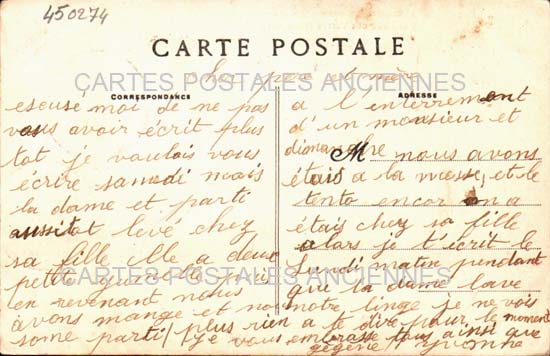 450274
CARTE POSTALE
Cher père et mère
CARTES POSTALES ANCIENNES
CORRESPONDANCE
ADRESSE
escuse moi de ne pas
vous avoir écrit plus
tot je voulais vous
écrire samedi mais
la dame et parti
aussitot levé chez
sa fille elle a deux
petite
en revenant nous
avons mangé et nou
some parti
a l'enterremont
d'un monsieur et
dimanche nous avons
étais a la messe, et le
tento encor on a
étais chez sa fille
alors je t'écrit le
Lundi matin pendant
que la dame lave
notre linge je ne vois
plus rien a te dire pour le moment
je vous embrasse tous ainsi que
gégène Yvonne
CARTES POSTALES ANCIENNES